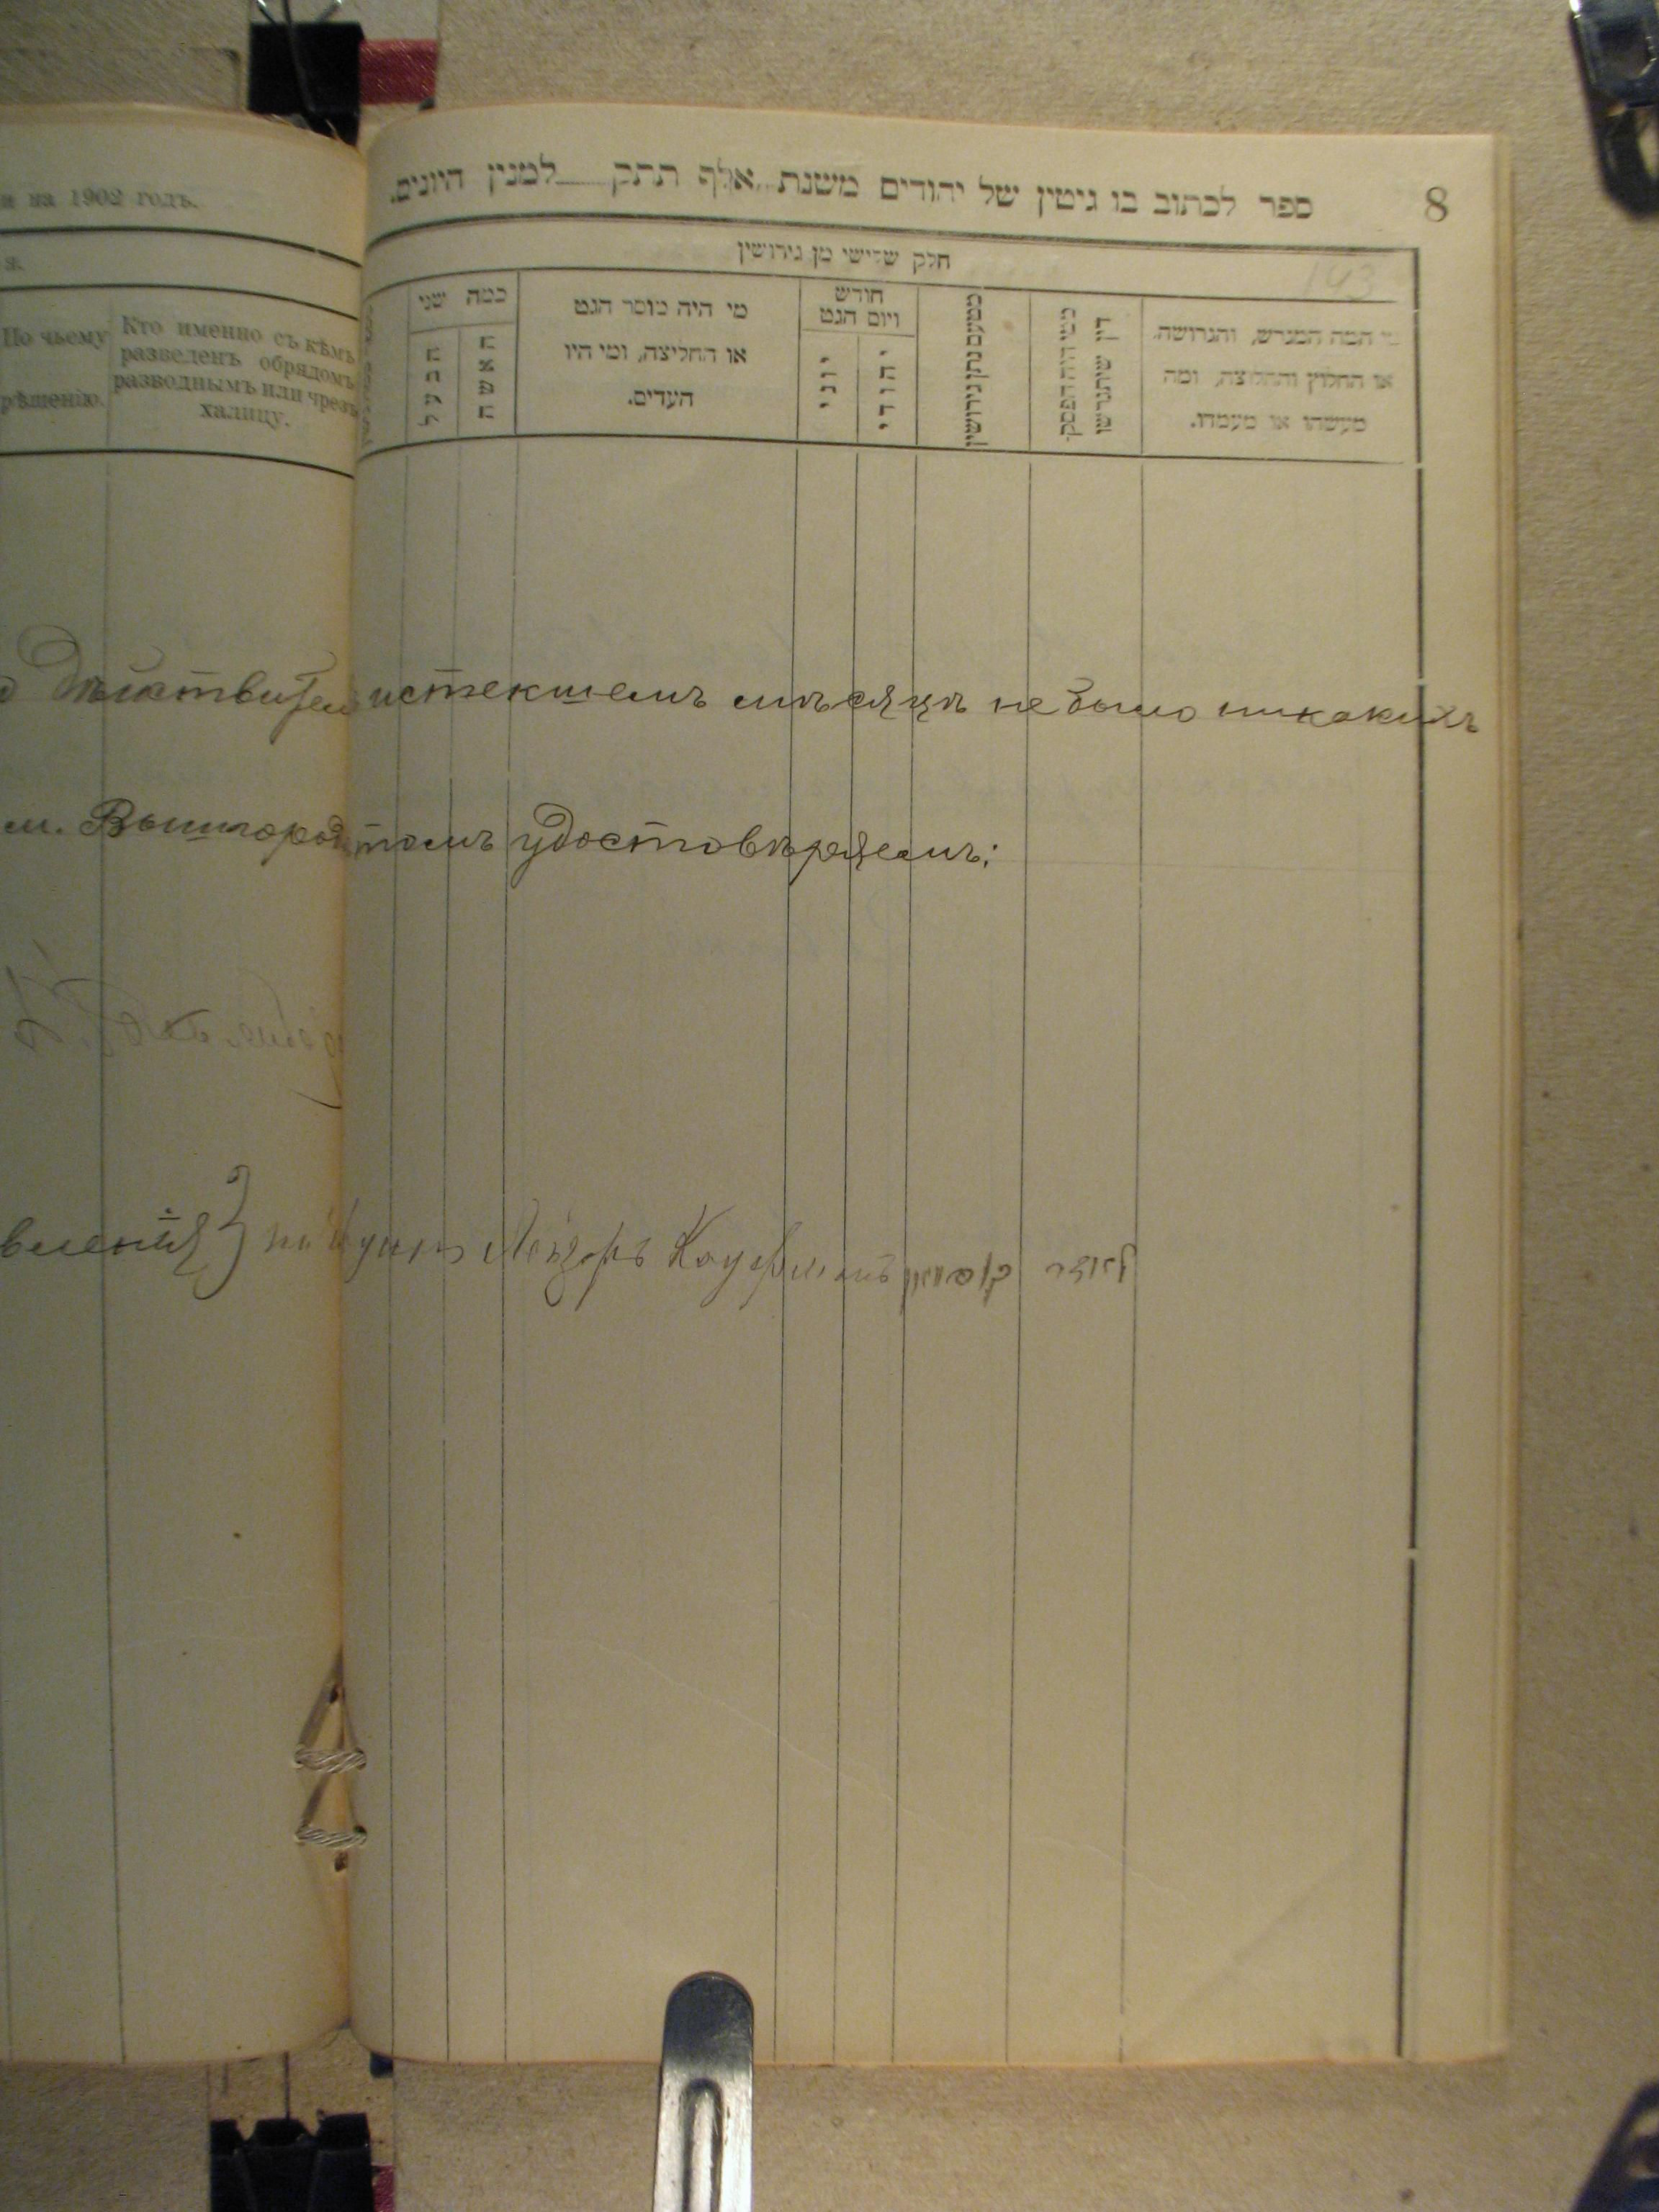 и на 1902 годъ.
я.
По чьему
рѣшенію.
Кто именно съ кѣмъ
разведенъ обрядомъ
разводнымъ или чрезъ
халицу.
8
ספר לכתוב בו גיטין של יהודים משנת אלף תתק למנין היונים.
חלק שלישי מן גירושין
143
מי המה המגרש, והגרושה.
או החלוץ והחלוצה, ומה
מעשהו או מעמדו.
דין שיתגרשו
חודש
ויום הגט
יהודי
יוני
מי היה מוסר הגט
או החליצה, ומי היו
העדים.
כמה שני
האשה
הבעל
истекшемъ мѣсяцѣ не было никакихъ
м. Вышгород томъ удостовѣряемъ:
вленія Лейзоръ Кауфманъ